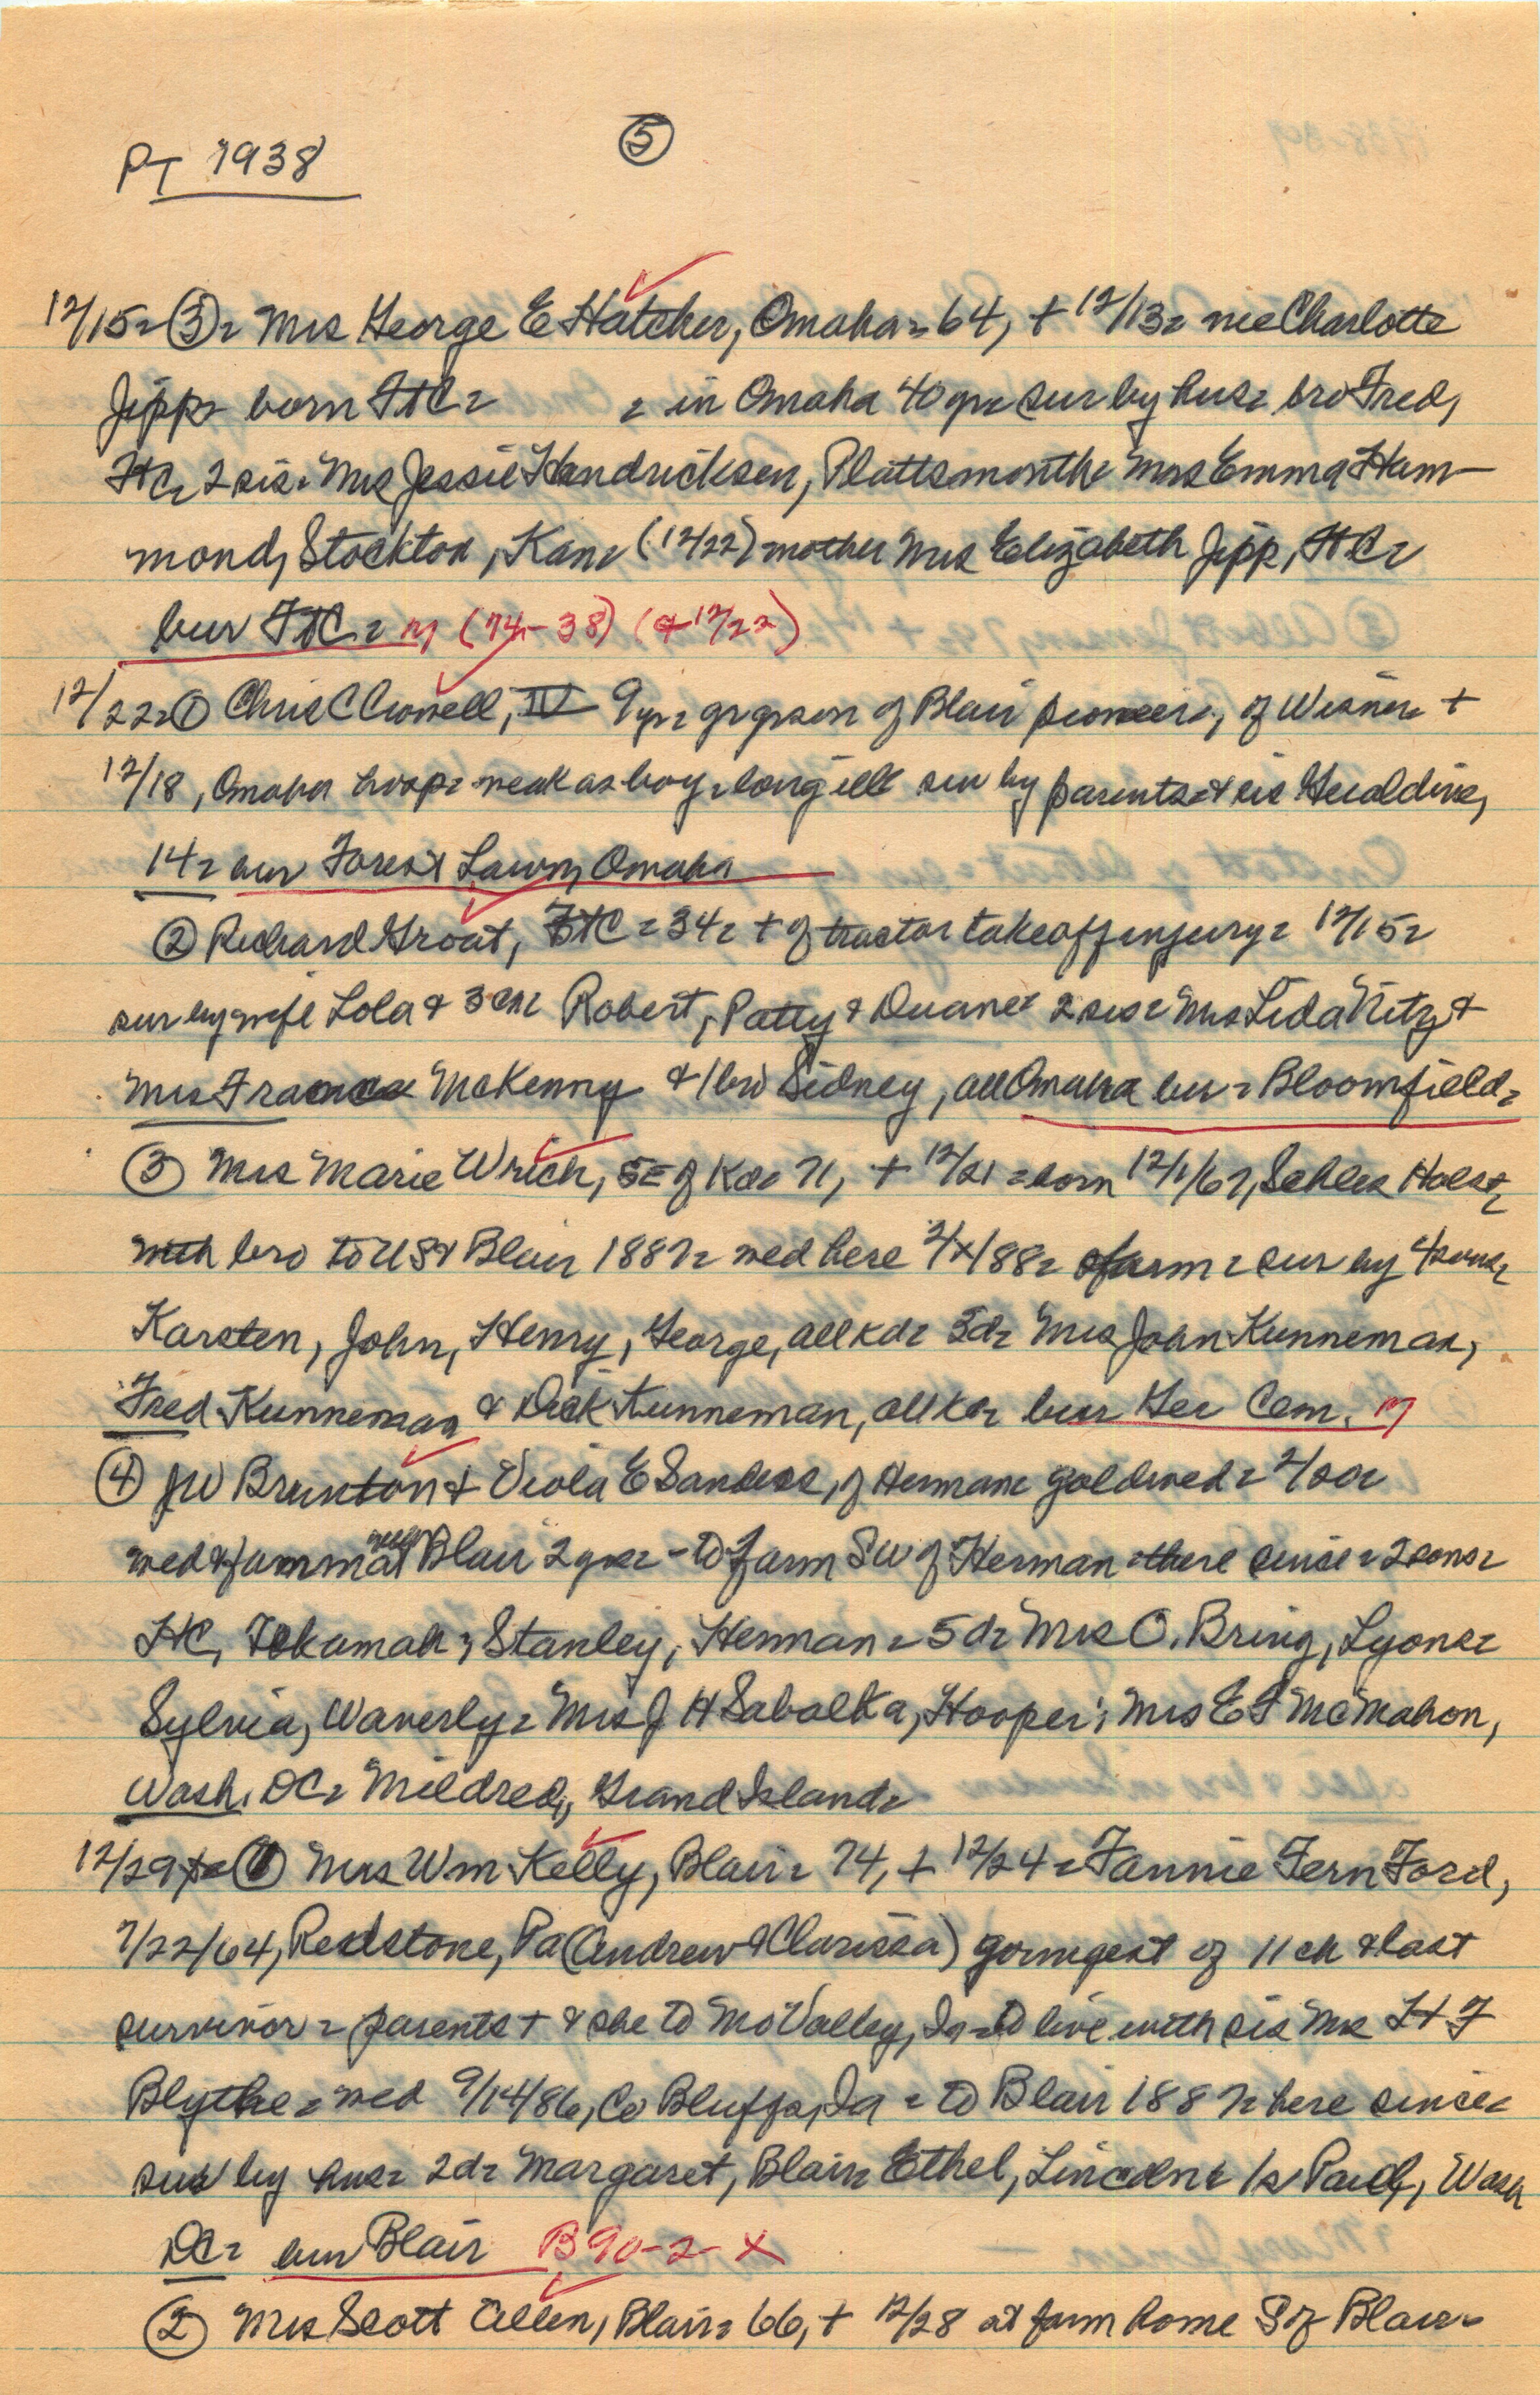 PT 1938
5
12/15 = 3 = Mrs George E Hatcher, Omaha = 64, + 12/13 = nee Charlotte
Jipp = born FtC = = in Omaha 40 yr = sur by hus = bro Fred,
FtC = 2 sis = Mrs Jessie Hendricksen, Plattsmouth = Mrs Emma Ham-
mond, Stockton, Kan = (12/22) mother Mrs Elizabeth Jipp, FtC =
bur FtC = M (74-38) (+ 12/22)
12/22 = 1 Chris C Crowell, IV 9 yr = gr grson of Blair pioneer, of Wisner +
12/18, Omaha hosp = weak as boy = long ill sur by parents & sis Geraldine,
14 = bur Forest Lawn, Omaha
2 Richard Grout, FtC = 34 = + of tractor takeoff injury = 12/15 =
sur by wife Lola & 3 ch = Robert, Patty & Duane = 2 sis = Mrs Lida Nitz &
Mrs Frances McKenny & 1 bro Sidney, all Omaha bur = Bloomfield =
3 Mrs Marie Wrich, SE of Kd = 71, + 12/21 = born 12/1/67, Schles Holst =
with bro to US & Blair 1887 = wed here 2/x/88 = farm = sur by 4 sons =
Karsten, John, Henry, George, all Kd = 3d = Mrs John Kunneman,
Fred Kunneman & Dick Kunneman, all Kd = bur Ger Cem. M
4 JW Brunton & Viola E Sanders, of Herman = gold wed =
wed & farm near Blair 2 yrs = to farm SW of Herman = there since = 2 sons =
HC, Tekamah; Stanley, Herman = 5d = Mrs O. Bring, Lyons =
Sylvia, Waverly = Mrs J H Sabalka, Hooper; Mrs E F McMahon,
Wash. DC = Mildred, Grand Island =
12/29 = 1 Mrs Wm Kelly, Blair = 74, + 12/24 = Fannie Fern Ford,
7/22/64, Redstone, Pa (Andrew & Clarissa) youngest of 11 ch & last
survivor = parents + & she to Mo Valley, Ia = to live with sis Mrs H F
Blythe = wed 9/14/86, Co Bluffs, Ia = to Blair 1887 = here since =
sur by hus = 2d = Margaret, Blair = Ethel, Lincoln = 1s Paul, Wash
DC = bur Blair B 90-2- X
2 Mrs Scott Allen, Blair = 66, + 12/28 at farm home S of Blair =